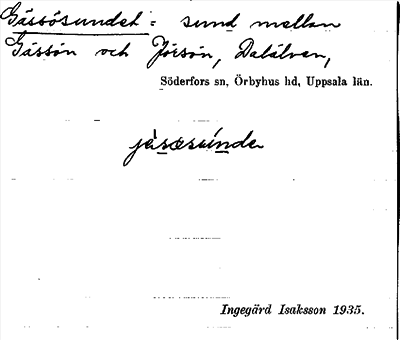 Gässösundet: sund mellan
Gässön och Jörsön, Dalälven,
Söderfors sn, Örbyhus hd, Uppsala län.
jäsœsúnde
Ingegärd Isaksson 1935.